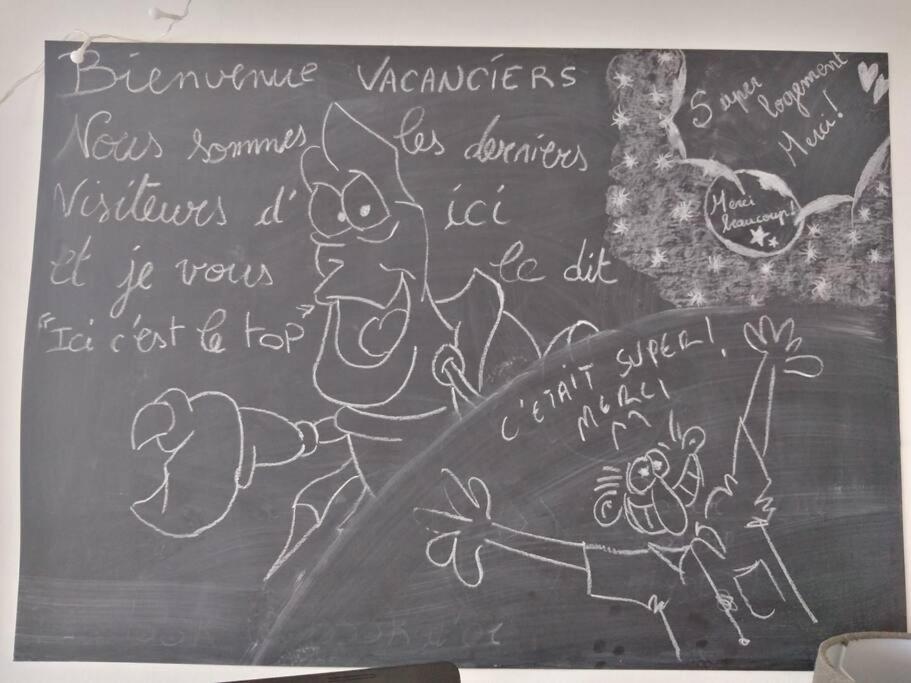 Bienvenue VACANCIERS
Nous sommes les derniers
Visiteurs d' ici
et je vous le dit
"Ici c'est le top"
Super
logement
Merci!
Merci
beaucoup!
C'ÉTAIT SUPER!
MERCI